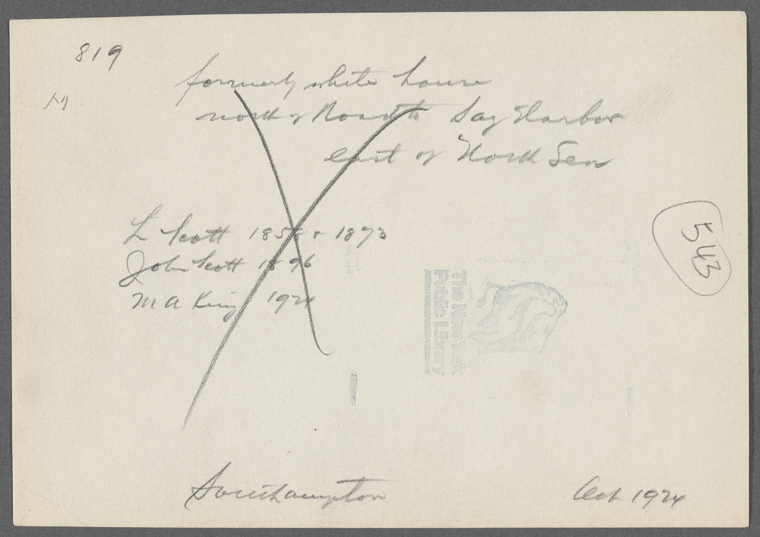 819
formerly white house
north of Road to Sag Harbor
east of North Sea
L Scott 1858 & 1873
John Scott 1896
M A King 1924
543
The New York
Public Library
Southampton
Oct 1924